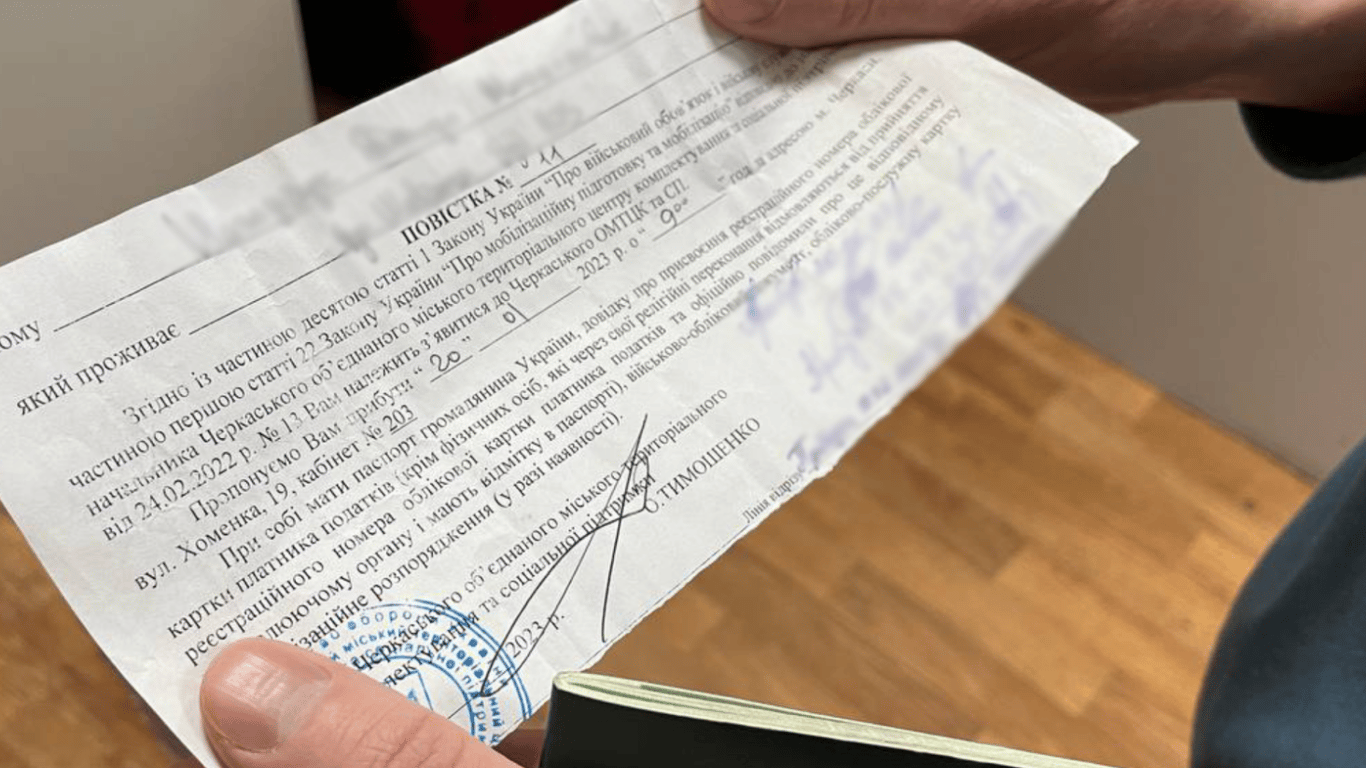 ому
який проживає
ПОВІСТКА №
Згідно із частиною десятою статті 1 Закону України “Про військовий обов’язок і військову
частиною першою статті 22 Закону України “Про мобілізаційну підготовку та мобілізацію”
начальника Черкаського об’єднаного міського територіального центру комплектування та соціальної
від 24.02.2022 р. № 13 Вам належить з’явитися до Черкаського ОМТЦК та СП.
Пропонуємо Вам прибути “ 20 ” 01 2023 р. о “ 9⁰⁰ ” год за адресою м. Черкаси,
вул. Хоменка, 19, кабінет № 203
При собі мати паспорт громадянина України, довідку про присвоєння реєстраційного номера облікової
картки платника податків (крім фізичних осіб, які через свої релігійні переконання відмовляються від прийняття
реєстраційного номера облікової картки платника податків та офіційно повідомили про це відповідному
люючому органу і мають відмітку в паспорті), військово-обліковий документ, обліково-послужну картку
ізаційне розпорядження (у разі наявності).
Черкаського об’єднаного міського територіального
плектування та соціальної підтримки
О. ТИМОШЕНКО
2023 р.
Лінія відрізу